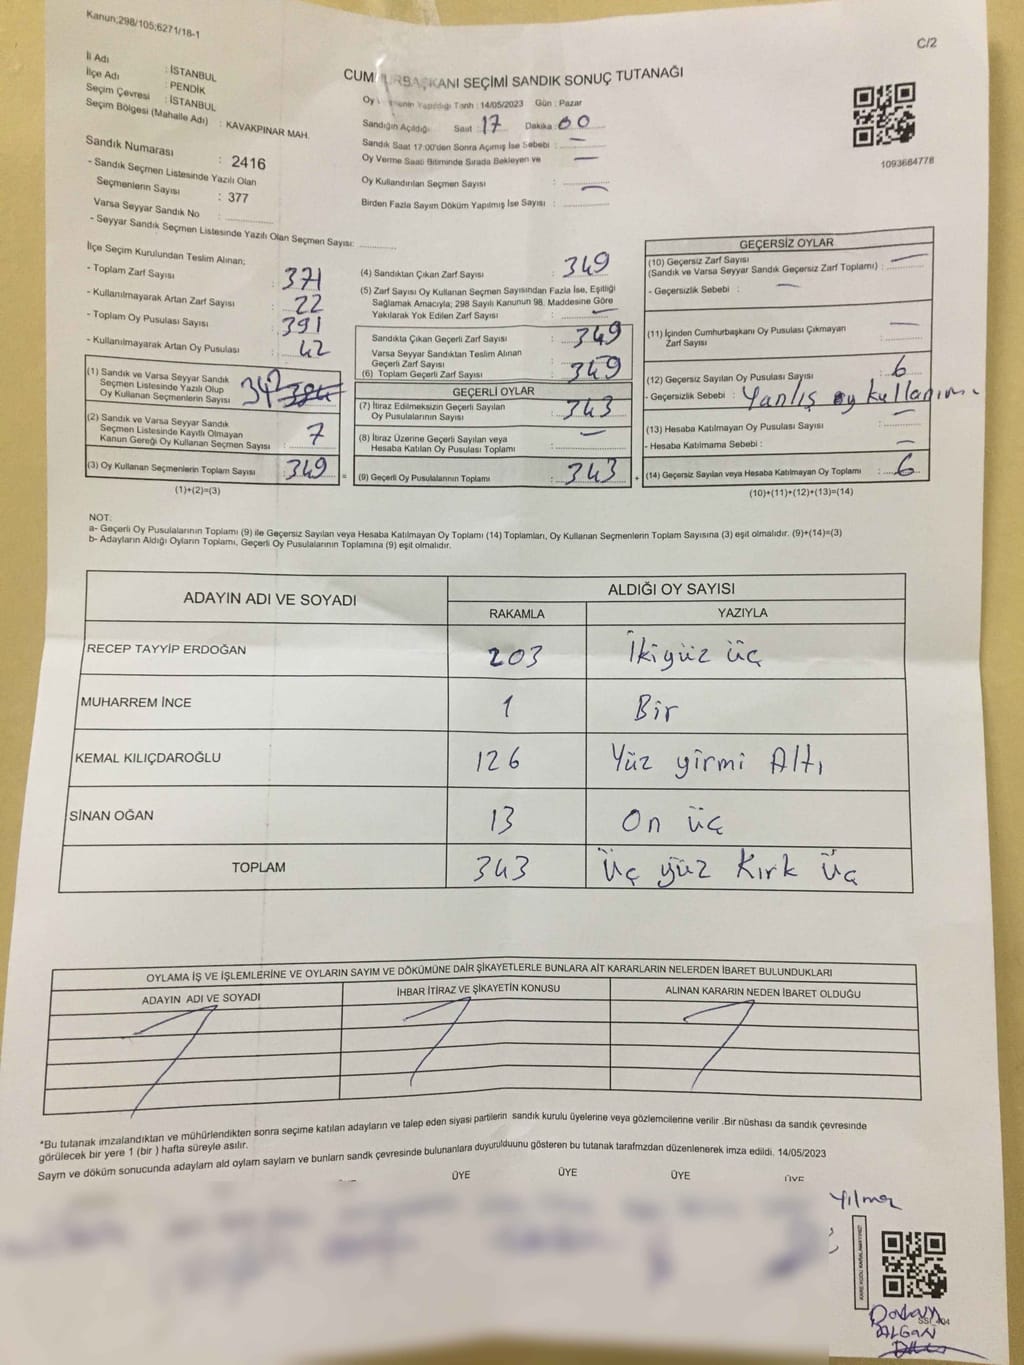 Kanun;298/105;6271/18-1
C/2
İl Adı : İSTANBUL
İlçe Adı : PENDİK
Seçim Çevresi : İSTANBUL
Seçim Bölgesi (Mahalle Adı) : KAVAKPINAR MAH.
Sandık Numarası : 2416
- Sandık Seçmen Listesinde Yazılı Olan
Seçmenlerin Sayısı : 377
Varsa Seyyar Sandık No :
- Seyyar Sandık Seçmen Listesinde Yazılı Olan Seçmen Sayısı:
CUM URBAŞKANI SEÇİMİ SANDIK SONUÇ TUTANAĞI
Oy Yapıldığı Tarih : 14/05/2023 Gün : Pazar
Sandığın Açıldığı Saat : 17 Dakika : 00
Sandık Saat 17:00'den Sonra Açımış İse Sebebi : —
Oy Verme Saati Bitiminde Sırada Bekleyen ve —
Oy Kullandırılan Seçmen Sayısı :
Birden Fazla Sayım Döküm Yapılmış İse Sayısı : —
1093664778
İlçe Seçim Kurulundan Teslim Alınan;
- Toplam Zarf Sayısı : 371
- Kullanılmayarak Artan Zarf Sayısı : 22
- Toplam Oy Pusulası Sayısı : 391
- Kullanılmayarak Artan Oy Pusulası : 42
(1) Sandık ve Varsa Seyyar Sandık
Seçmen Listesinde Yazılı Olup
Oy Kullanan Seçmenlerin Sayısı 342
(2) Sandık ve Varsa Seyyar Sandık
Seçmen Listesinde Kayıtlı Olmayan
Kanun Gereği Oy Kullanan Seçmen Sayısı : 7
(3) Oy Kullanan Seçmenlerin Toplam Sayısı : 349 =
(1)+(2)=(3)
(4) Sandıktan Çıkan Zarf Sayısı : 349
(5) Zarf Sayısı Oy Kullanan Seçmen Sayısından Fazla İse, Eşitliği
Sağlamak Amacıyla; 298 Sayılı Kanunun 98. Maddesine Göre
Yakılarak Yok Edilen Zarf Sayısı : —
Sandıkta Çıkan Geçerli Zarf Sayısı : 349
Varsa Seyyar Sandıktan Teslim Alınan
Geçerli Zarf Sayısı :
(6) Toplam Geçerli Zarf Sayısı : 349
GEÇERLİ OYLAR
(7) İtiraz Edilmeksizin Geçerli Sayılan
Oy Pusulalarının Sayısı : 343
(8) İtiraz Üzerine Geçerli Sayılan veya
Hesaba Katılan Oy Pusulası Toplamı : —
(9) Geçerli Oy Pusulalarının Toplamı : 343 +
GEÇERSİZ OYLAR
(10) Geçersiz Zarf Sayısı
(Sandık ve Varsa Seyyar Sandık Geçersiz Zarf Toplamı) : —
- Geçersizlik Sebebi : —
(11) İçinden Cumhurbaşkanı Oy Pusulası Çıkmayan
Zarf Sayısı : —
(12) Geçersiz Sayılan Oy Pusulası Sayısı : 6
- Geçersizlik Sebebi : Yanlış oy kullanımı
(13) Hesaba Katılmayan Oy Pusulası Sayısı : —
- Hesaba Katılmama Sebebi : —
(14) Geçersiz Sayılan veya Hesaba Katılmayan Oy Toplamı : 6
(10)+(11)+(12)+(13)=(14)
NOT:
a- Geçerli Oy Pusulalarının Toplamı (9) ile Geçersiz Sayılan veya Hesaba Katılmayan Oy Toplamı (14) Toplamları, Oy Kullanan Seçmenlerin Toplam Sayısına (3) eşit olmalıdır. (9)+(14)=(3)
b- Adayların Aldığı Oyların Toplamı, Geçerli Oy Pusulalarının Toplamına (9) eşit olmalıdır.
ADAYIN ADI VE SOYADI ALDIĞI OY SAYISI
RAKAMLA YAZIYLA
RECEP TAYYİP ERDOĞAN 203 İkiyüz üç
MUHARREM İNCE 1 Bir
KEMAL KILIÇDAROĞLU 126 Yüz yirmi Altı
SİNAN OĞAN 13 On üç
TOPLAM 343 Üç yüz Kırk Üç
OYLAMA İŞ VE İŞLEMLERİNE VE OYLARIN SAYIM VE DÖKÜMÜNE DAİR ŞİKAYETLERLE BUNLARA AİT KARARLARIN NELERDEN İBARET BULUNDUKLARI
ADAYIN ADI VE SOYADI İHBAR İTİRAZ VE ŞİKAYETİN KONUSU ALINAN KARARIN NEDEN İBARET OLDUĞU
*Bu tutanak imzalandıktan ve mühürlendikten sonra seçime katılan adayların ve talep eden siyasi partilerin sandık kurulu üyelerine veya gözlemcilerine verilir .Bir nüshası da sandık çevresinde
görülecek bir yere 1 (bir ) hafta süreyle asılır.
Sayım ve döküm sonucunda adaylarn ald oylarn saylarn ve bunlarn sandk çevresinde bulunanlara duyurulduunu gösteren bu tutanak tarafmzdan düzenlenerek imza edildi. 14/05/2023
ÜYE ÜYE ÜYE ÜYE
Yılmaz